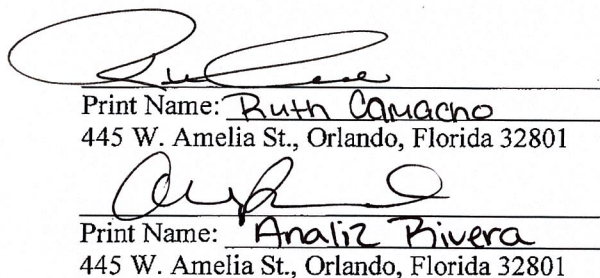 Print Name: Ruth Camacho
445 W. Amelia St., Orlando, Florida 32801
Print Name: Analiz Rivera
445 W. Amelia St., Orlando, Florida 32801